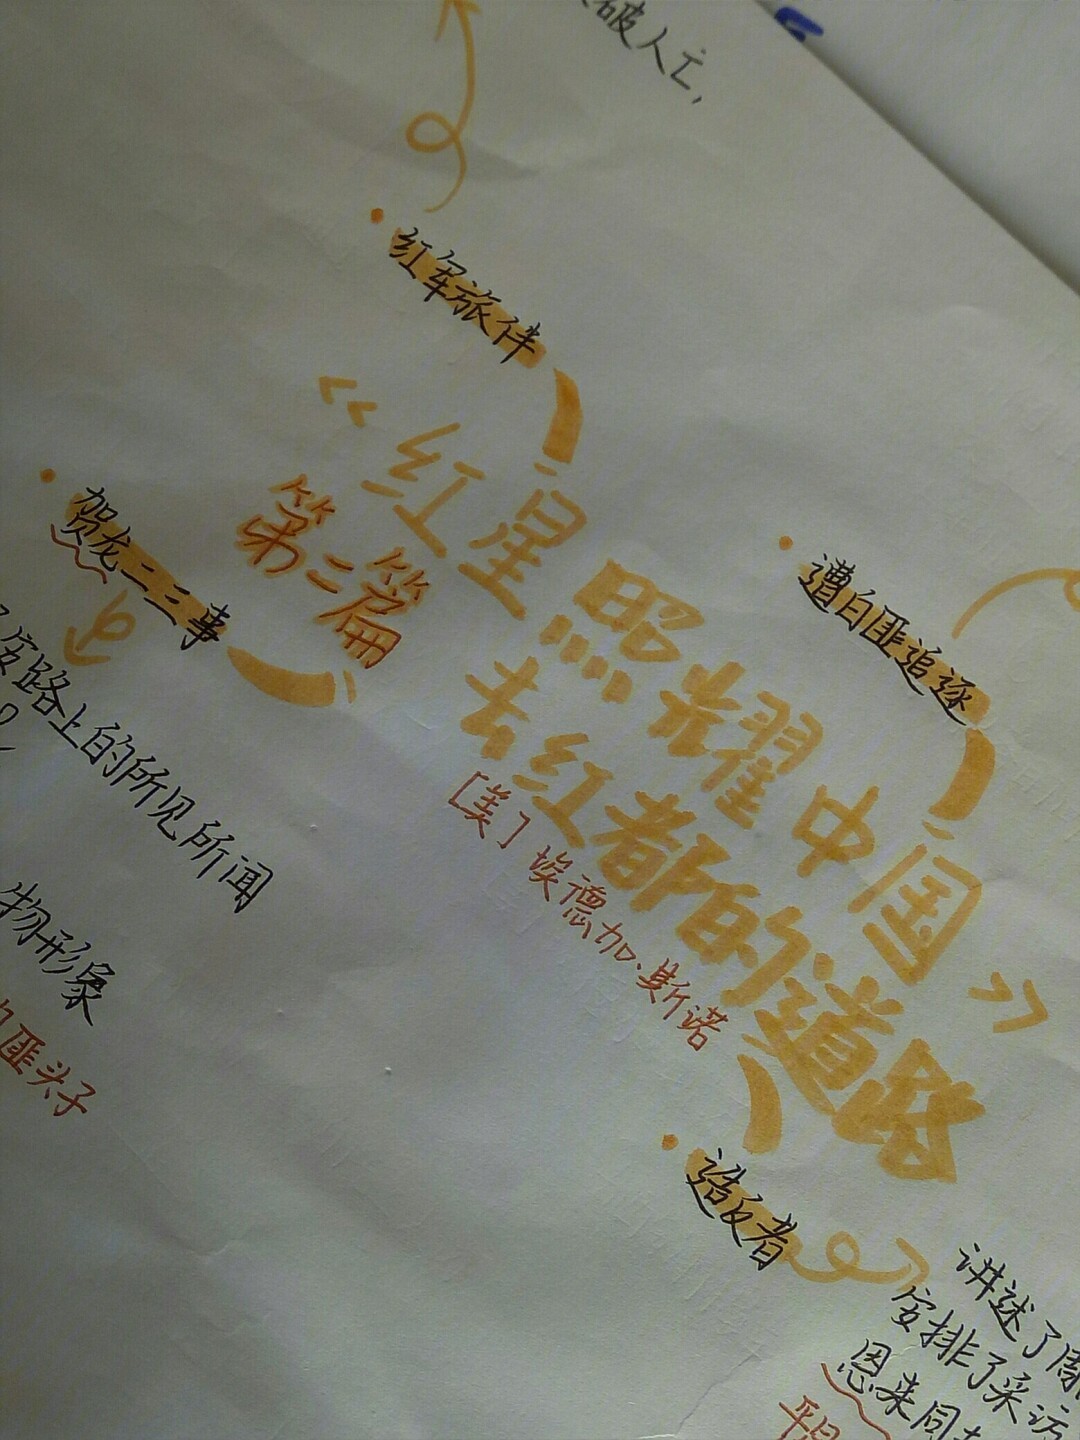 破人亡，
红军旅伴
《红星照耀中国》
第二篇
去红都的道路
[美]埃德加·斯诺
贺龙二三事
安路上的所见所闻
物形象
匪头子
遭白匪追逐
造反者
讲述了周
安排了采访
恩来同